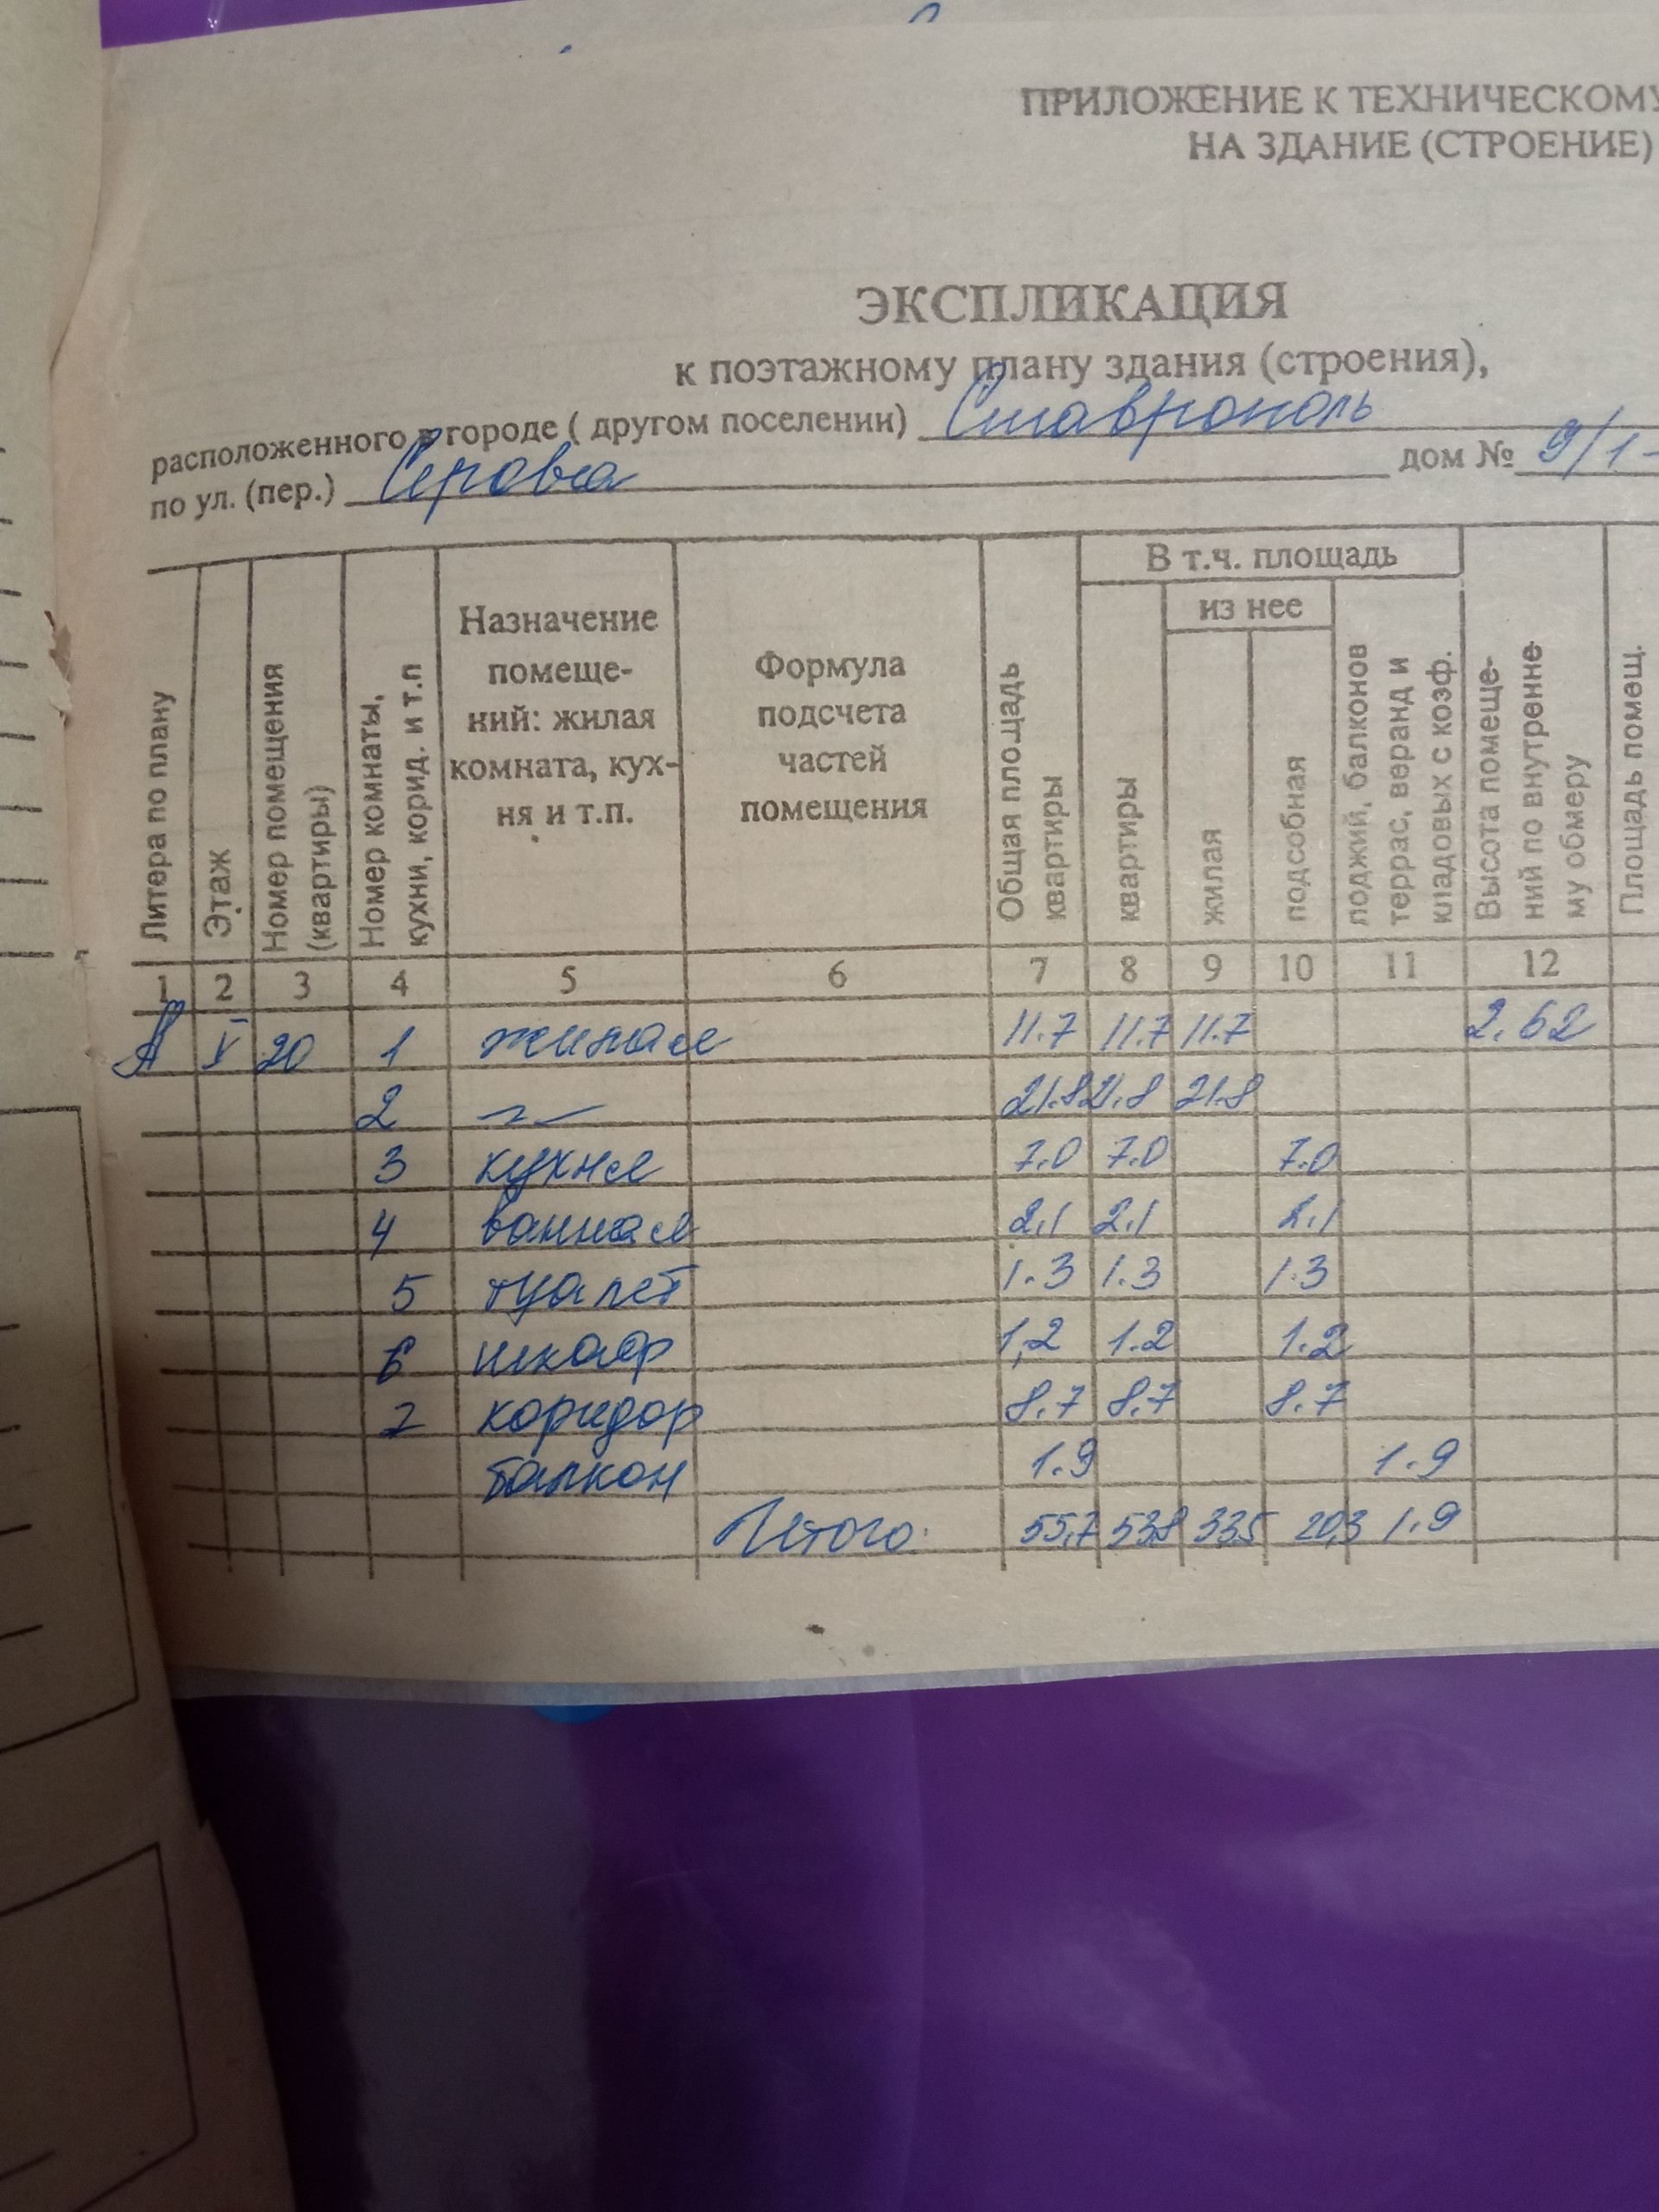 ПРИЛОЖЕНИЕ К ТЕХНИЧЕСКОМУ
НА ЗДАНИЕ (СТРОЕНИЕ)
ЭКСПЛИКАЦИЯ
к поэтажному плану здания (строения),
расположенного в городе ( другом поселении) Ставрополь
по ул. (пер.) Серова дом № 9/1-
Литера по плану
Этаж
Номер помещения
(квартиры)
Номер комнаты,
кухни, корид. и т.п
Назначение
помеще-
ний: жилая
комната, кух-
ня и т.п.
Формула
подсчета
частей
помещения
Общая площадь
квартиры
В т.ч. площадь
квартиры
из нее
жилая
подсобная
лоджий, балконов
террас, веранд и
кладовых с коэф.
Высота помеще-
ний по внутренне-
му обмеру
Площадь помещ.
1 2 3 4 5 6 7 8 9 10 11 12
А V 20 1 жилая 11.7 11.7 11.7 2.62
2 -"- 21.8 21.8 21.8
3 кухня 7.0 7.0 7.0
4 ванная 2.1 2.1 2.1
5 туалет 1.3 1.3 1.3
6 шкаф 1,2 1.2 1.2
7 коридор 8.7 8.7 8.7
балкон 1.9 1.9
Итого: 55,7 53,8 33,5 20,3 1.9